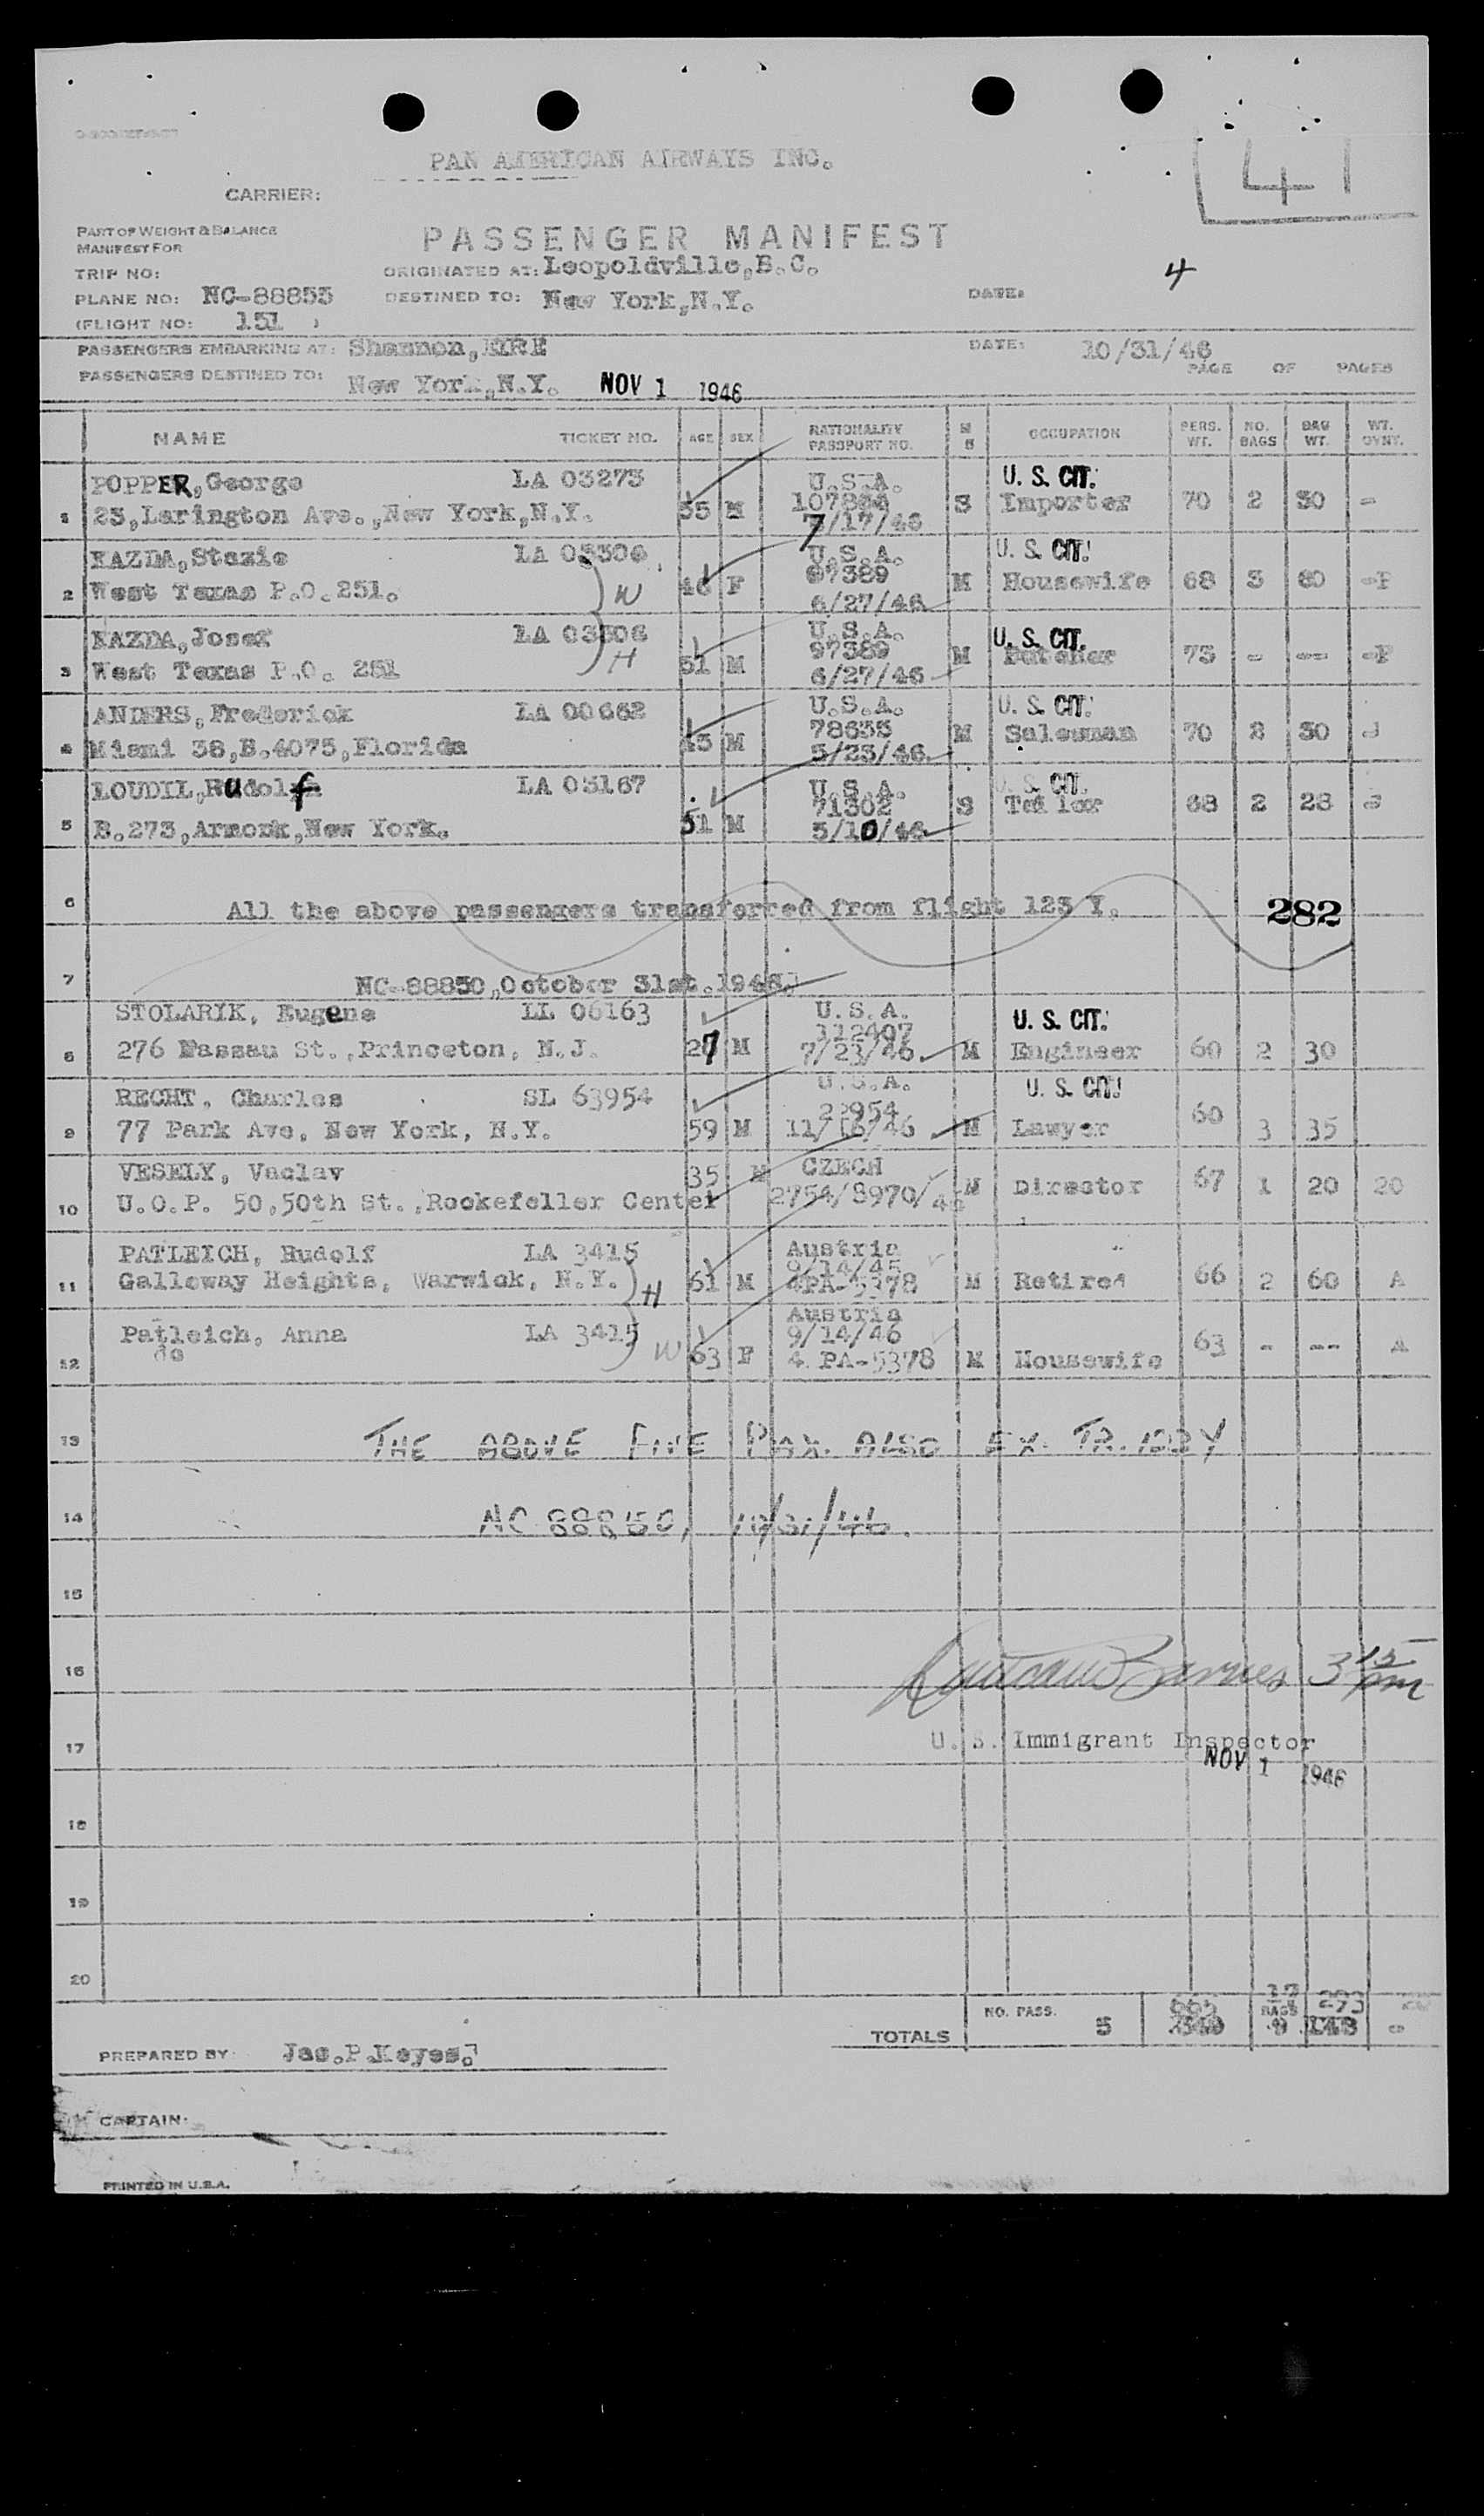 PAN AMERICAN AIRWAYS INC.
41
CARRIER:
PART OF WEIGHT & BALANCE
MANIFEST FOR
PASSENGER MANIFEST
TRIP NO:
ORIGINATED AT: Leopoldville,B.C.
4
PLANE NO: NC-88853
DESTINED TO: New York,N.Y.
DATE:
(FLIGHT NO: 151 )
PASSENGERS EMBARKING AT: Shannon,EIRE
DATE: 10/31/46
PASSENGERS DESTINED TO: New York,N.Y. NOV 1 1946
PAGE OF PAGES
NAME TICKET NO. AGE SEX NATIONALITY PASSPORT NO. M S OCCUPATION PERS. WT. NO. BAGS BAG WT. WT. OVNT.
POPPER,George LA 03273 U.S.A. U. S. CIT.
1 23,Larington Ave.,New York,N.Y. 35 M 7/17/46 S Importer 70 2 30 -
KAZDA,Stazie LA 03306 U.S.A. U. S. CIT.
2 West Texas P.O.251. W 46 F 97389 M Housewife 68 3 80 -P
6/27/46
KAZDA,Josef LA 03306 U.S.A. U. S. CIT.
3 West Texas P.O. 251 H 51 M 97389 M Butcher 73 - -- -P
6/27/46
ANDERS,Frederick LA 00662 U.S.A. U. S. CIT.
4 Miami 38,B.4075,Florida 43 M 78633 M Salesman 70 2 30
5/23/46
LOUDIL,Rudolf LA 03167 U.S.A. U. S. CIT.
5 B.273,Armonk,New York. 51 M 71302 S Tailor 68 2 28
5/10/46
6 All the above passengers transferred from flight 123 Y. 282
7 NC-88850,October 31st.1946.
STOLARIK, Eugene LL 06163 U.S.A. U. S. CIT.
8 276 Nassau St.,Princeton, N.J. 27 M 112407 M Engineer 60 2 30
7/23/46
RECHT, Charles SL 63954 U.S.A. U. S. CIT.
9 77 Park Ave, New York, N.Y. 59 M 11/16/46 M Lawyer 60 3 35
VESELY, Vaclav 35 M CZECH
10 U.O.P. 50,50th St.,Rockefeller Center 2754/8970/46 M Director 67 1 20 20
PATLEICH, Rudolf LA 3415 Austria
9/14/45
11 Galloway Heights, Warwick, N.Y. H 61 M 4PA-5378 M Retired 66 2 60 A
Patleich, Anna LA 3415 Austria
9/14/46
12 do W 63 F 4 PA-5378 M Housewife 63 - -- A
13 THE ABOVE FIVE PAX. ALSO EX. TR. 123Y
14 NC 88850, 10/31/46.
15
16 3 15 pm
17 U. S. Immigrant Inspector
NOV 1 1946
18
19
20
TOTALS NO. PASS. 5 665 BAGS 9 293
PREPARED BY: Jas.P.Keyes.
CAPTAIN:
PRINTED IN U.S.A.